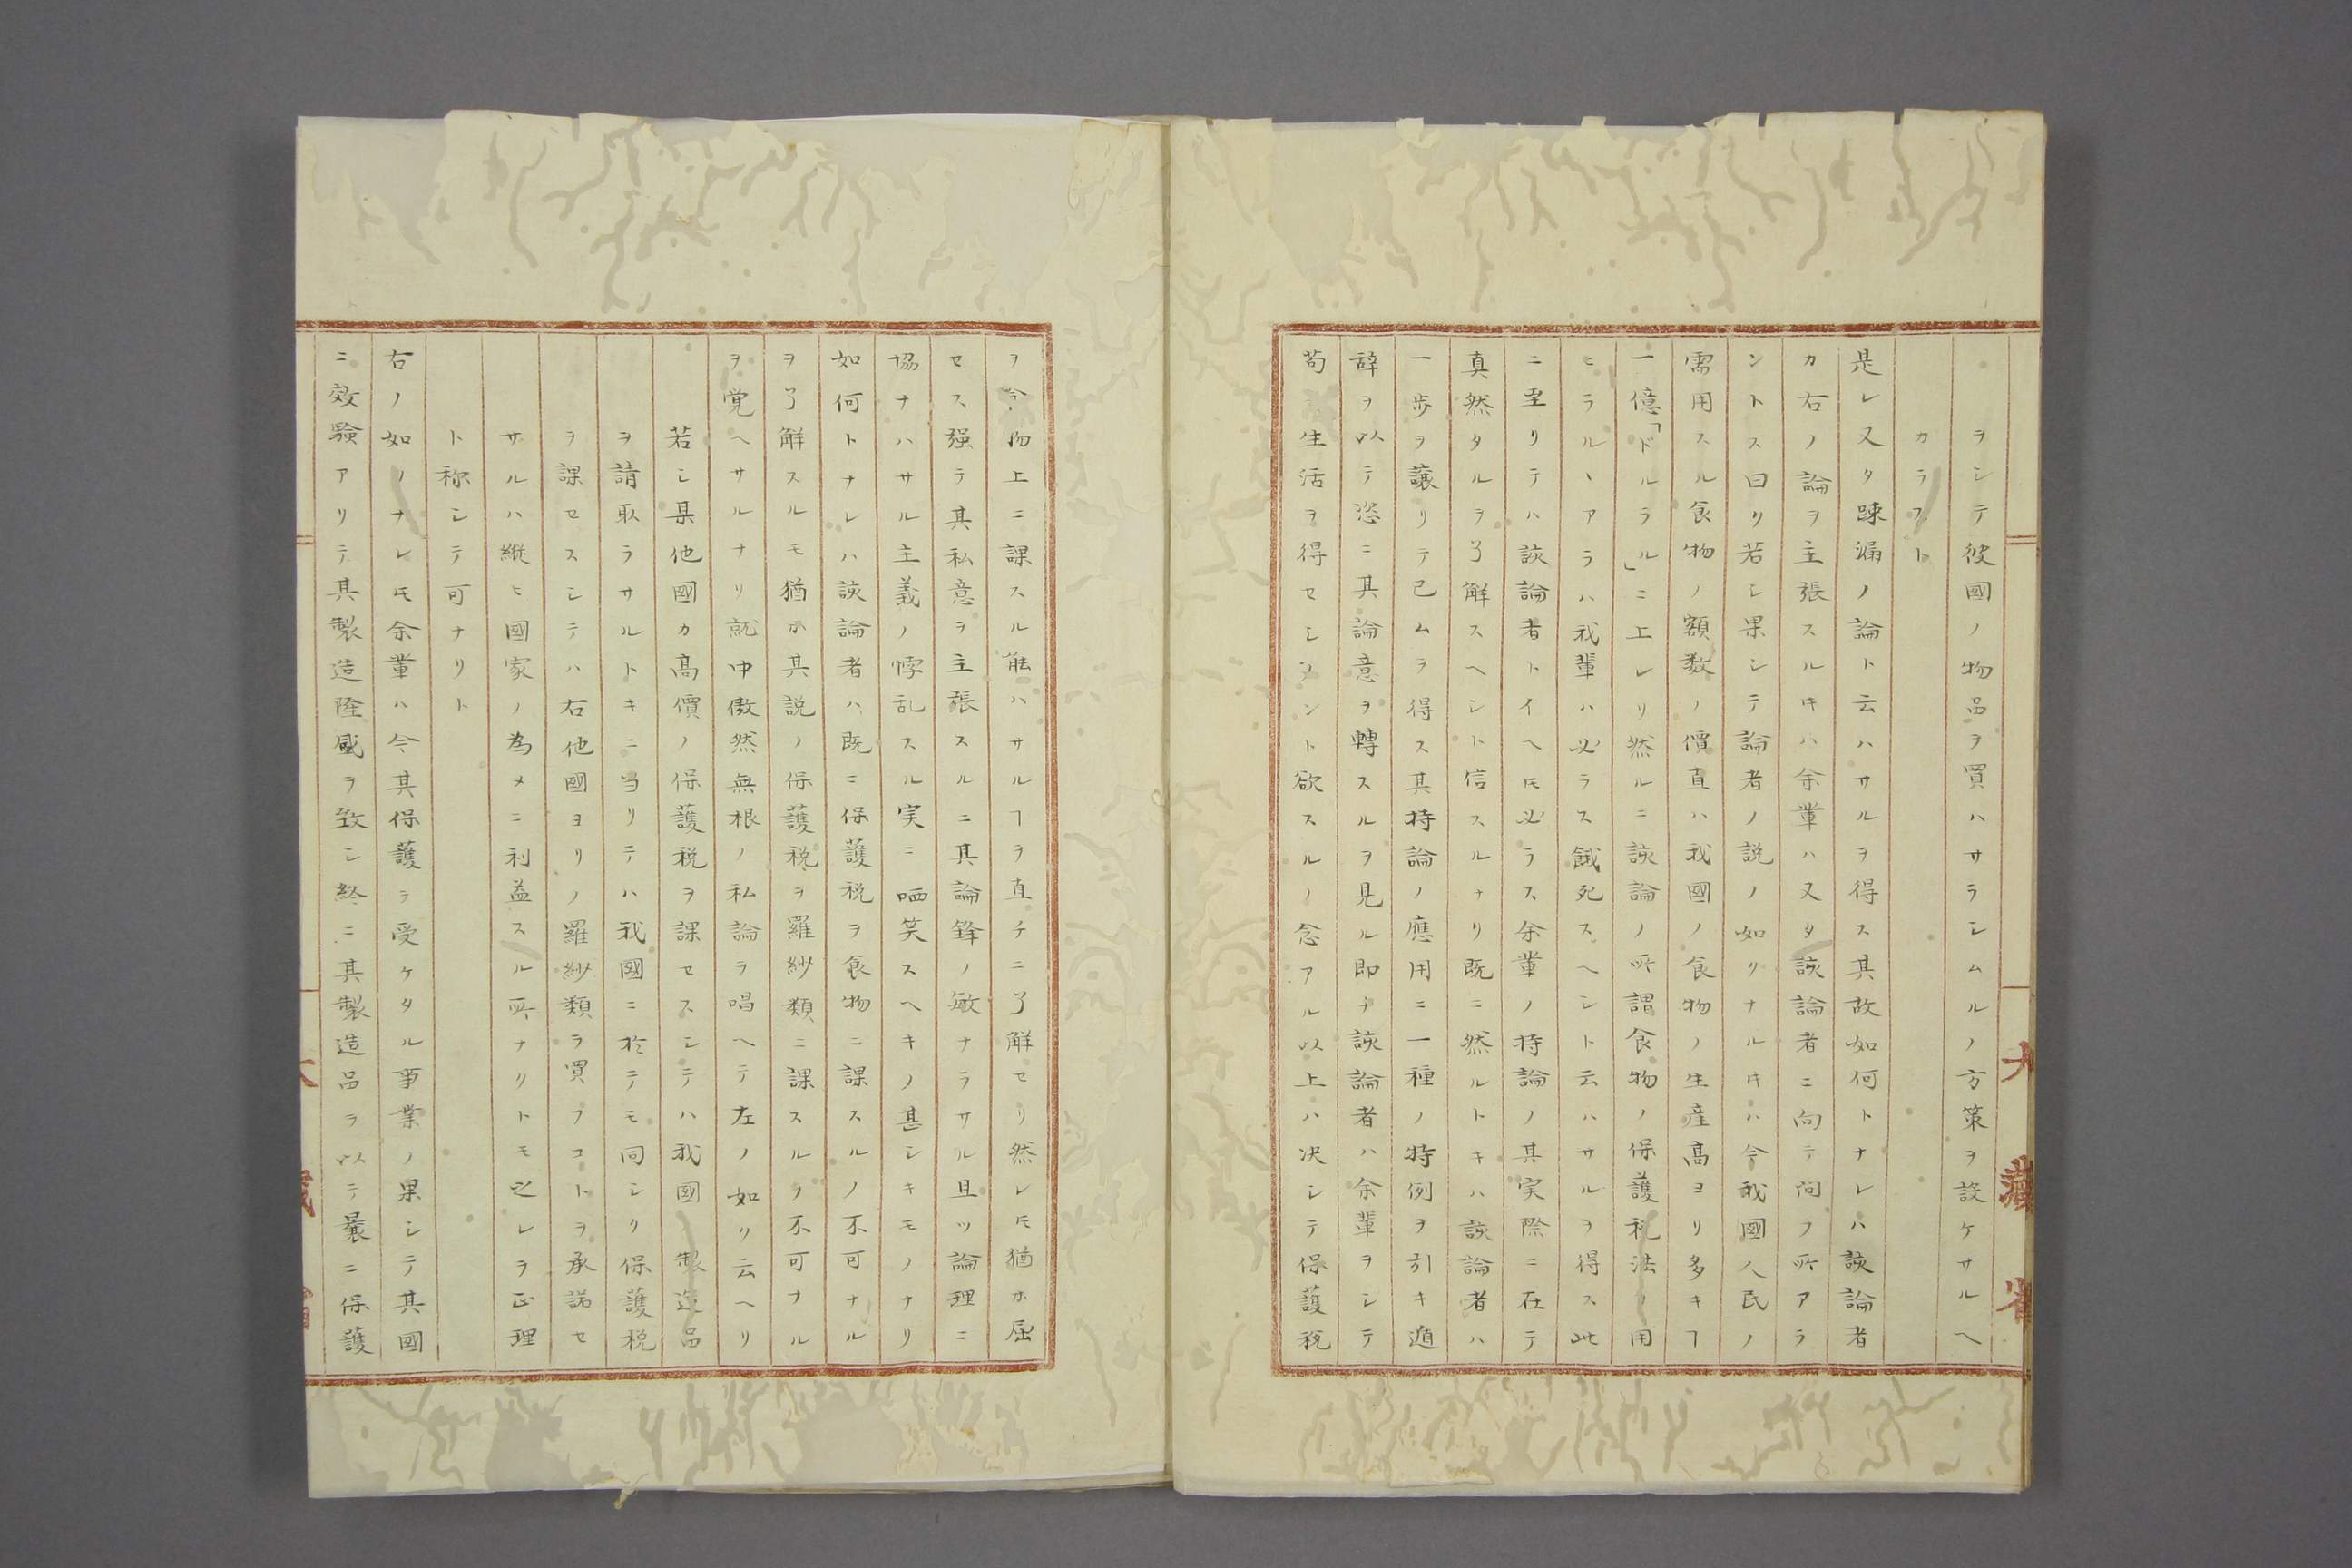 ヲシテ彼國ノ物品ヲ買ハサラシムルノ方策ヲ設ケサルヘ
カラスト
是レ又タ踈漏ノ論ト云ハサルヲ得ス其故如何トナレハ該論者
カ右ノ論ヲ主張スルヰハ余輩ハ又タ該論者ニ向テ問フ所アラ
ントス曰リ若シ果シテ論者ノ説ノ如リナルヰハ今我國人民ノ
需用スル食物ノ額数ノ價直ハ我國ノ食物ノ生産高ヨリ多キヿ
一億「ドルラル」ニ上レリ然ルニ該論ノ所謂食物ノ保護税法ノ用
ヒラルヽアラハ我輩ハ必ラス餓死スヘシト云ハサルヲ得ス此
ニ至リテハ該論者トイヘ𪜈必ラス余輩ノ持論ノ其実際ニ在テ
真然タルヲ了解スヘシト信スルナリ既ニ然ルトキハ該論者ハ
一歩ヲ譲リテ已ムヲ得ス其持論ノ應用ニ一種ノ特例ヲ引キ遁
辞ヲ以テ恣ニ其論意ヲ轉スルヲ見ル即チ該論者ハ余輩ヲシテ
苟モ生活ヲ得セシメント欲スルノ念アル以上ハ决シテ保護税
大藏省
ヲ食物上ニ課スル能ハサルヿヲ直チニ了解セリ然レ𪜈猶ホ屈
セス强テ其私意ヲ主張スルニ其論鋒ノ敏ナラサル且ツ論理ニ
協ナハサル主義ノ悖乱スル実ニ哂笑スヘキノ甚シキモノナリ
如何トナレハ該論者ハ既ニ保護税ヲ食物ニ課スルノ不可ナル
ヲ了解スルモ猶ホ其説ノ保護税ヲ羅紗類ニ課スルノ不可ナル
ヲ覚ヘサルナリ就中傲然無根ノ私論ヲ唱ヘテ左ノ如リ云ヘリ
若シ某他國カ高價ノ保護税ヲ課セスシテハ我國製造品
ヲ請取ラサルトキニ当リテハ我國ニ於テモ同シリ保護税
ヲ課セスシテハ右他國ヨリノ羅紗類ヲ買フコトヲ承諾セ
サルハ縦ヒ國家ノ為メニ利益スル所ナリトモ之レヲ正理
ト称シテ可ナリト
右ノ如ノナレ𪜈余輩ハ今其保護ヲ受ケタル事業ノ果シテ其國
ニ效驗アリテ其製造隆盛ヲ致シ終ニ其製造品ヲ以テ曩ニ保護